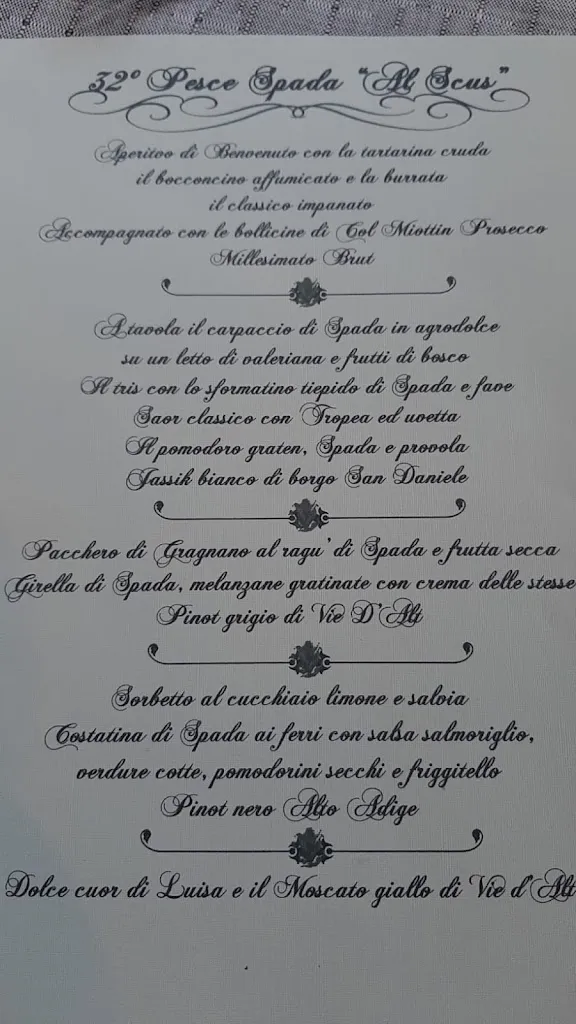 32° Pesce Spada "Al Scus"
Aperitvo di Benvenuto con la tartarina cruda
il bocconcino affumicato e la burrata
il classico impanato
Accompagnato con le bollicine di Col Miottin Prosecco
Millesimato Brut
A tavola il carpaccio di Spada in agrodolce
su un letto di valeriana e frutti di bosco
Il tris con lo sformatino tiepido di Spada e fave
Saor classico con Tropea ed uvetta
Il pomodoro graten, Spada e provola
Jassik bianco di borgo San Daniele
Pacchero di Gragnano al ragu' di Spada e frutta secca
Girella di Spada, melanzane gratinate con crema delle stesse
Pinot grigio di Vie D'Alt
Sorbetto al cucchiaio limone e salvia
Costatina di Spada ai ferri con salsa salmoriglio,
verdure cotte, pomodorini secchi e friggitello
Pinot nero Alto Adige
Dolce cuor di Luisa e il Moscato giallo di Vie d'Alt